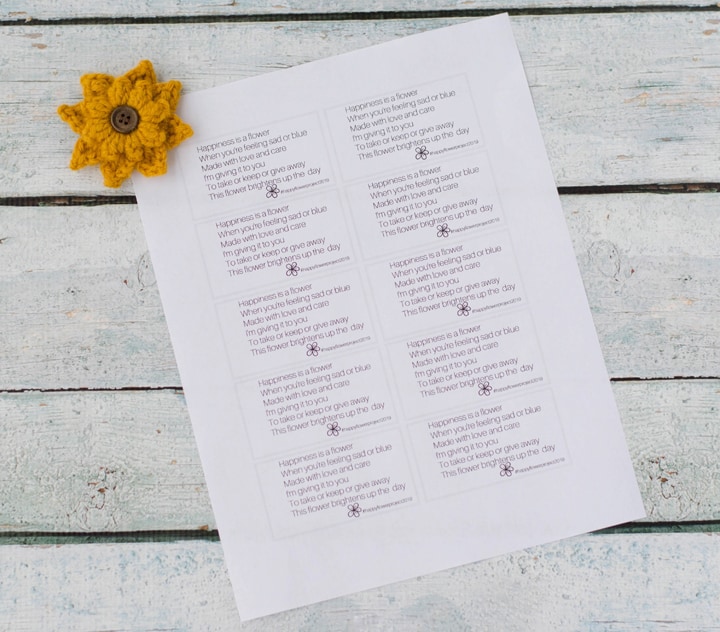 Happiness is a flower
When you're feeling sad or blue
Made with love and care
I'm giving it to you
To take or keep or give away
This flower brightens up the day
#happyflowerproject2019
Happiness is a flower
When you're feeling sad or blue
Made with love and care
I'm giving it to you
To take or keep or give away
This flower brightens up the day
#happyflowerproject2019
Happiness is a flower
When you're feeling sad or blue
Made with love and care
I'm giving it to you
To take or keep or give away
This flower brightens up the day
#happyflowerproject2019
Happiness is a flower
When you're feeling sad or blue
Made with love and care
I'm giving it to you
To take or keep or give away
This flower brightens up the day
#happyflowerproject2019
Happiness is a flower
When you're feeling sad or blue
Made with love and care
I'm giving it to you
To take or keep or give away
This flower brightens up the day
#happyflowerproject2019
Happiness is a flower
When you're feeling sad or blue
Made with love and care
I'm giving it to you
To take or keep or give away
This flower brightens up the day
#happyflowerproject2019
Happiness is a flower
When you're feeling sad or blue
Made with love and care
I'm giving it to you
To take or keep or give away
This flower brightens up the day
#happyflowerproject2019
Happiness is a flower
When you're feeling sad or blue
Made with love and care
I'm giving it to you
To take or keep or give away
This flower brightens up the day
#happyflowerproject2019
Happiness is a flower
When you're feeling sad or blue
Made with love and care
I'm giving it to you
To take or keep or give away
This flower brightens up the day
#happyflowerproject2019
Happiness is a flower
When you're feeling sad or blue
Made with love and care
I'm giving it to you
To take or keep or give away
This flower brightens up the day
#happyflowerproject2019